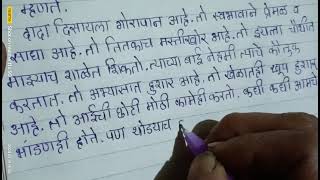 म्हणते.
दादा दिसायला गोरापान आहे. तो स्वभावाने प्रेमळ व
साधा आहे. तो तितकाच मस्तीखोर आहे. तो इयत्ता चौथीत
माझ्याच शाळेत शिकतो. त्याच्या बाई नेहमी त्याचे कौतुक
करतात. तो अभ्यासात हुशार आहे. तो खेळातही खूप हुशार
आहे. तो आईची छोटी मोठी कामेही करतो. कधी कधी आमचे
भांडणही होते. पण थोड्याच